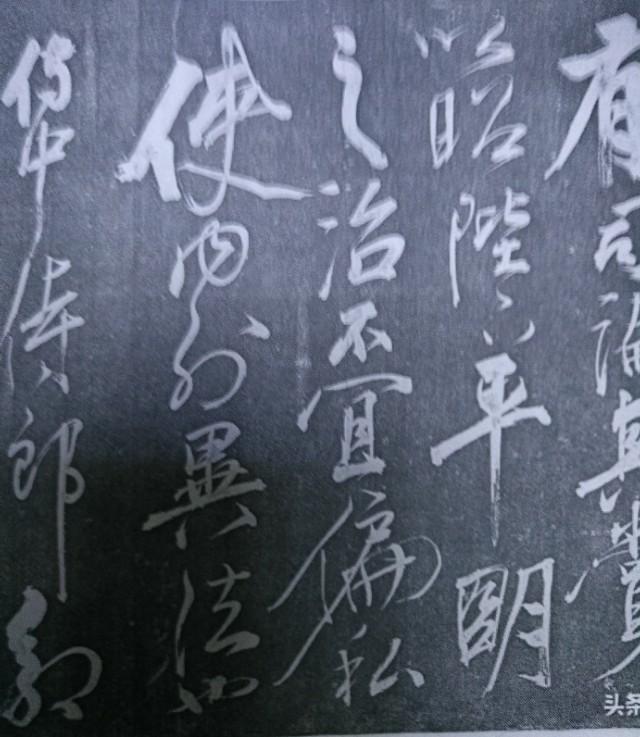 有司論其賞
昭陛下平明
之治不宜偏私
使内外異法也
侍中侍郎郭
头条